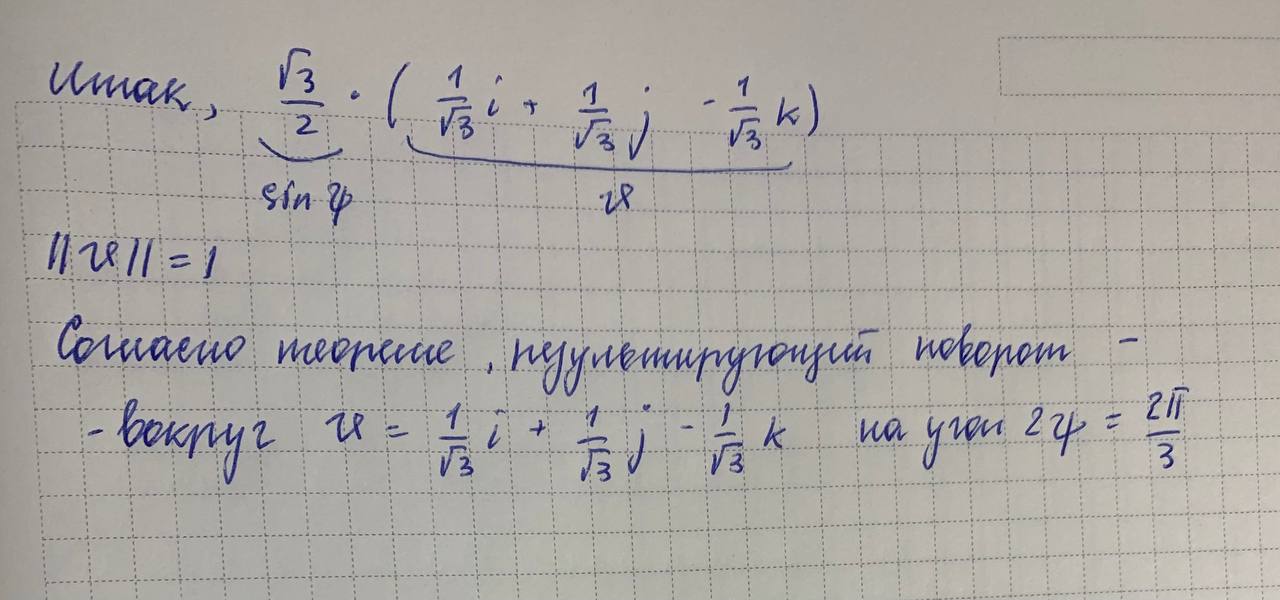 Итак, √3/2 · (1/√3 i + 1/√3 j - 1/√3 k)
sin ψ v
||v|| = 1
Согласно теореме, результирующий поворот -
- вокруг v = 1/√3 i + 1/√3 j - 1/√3 k на угол 2ψ = 2π/3